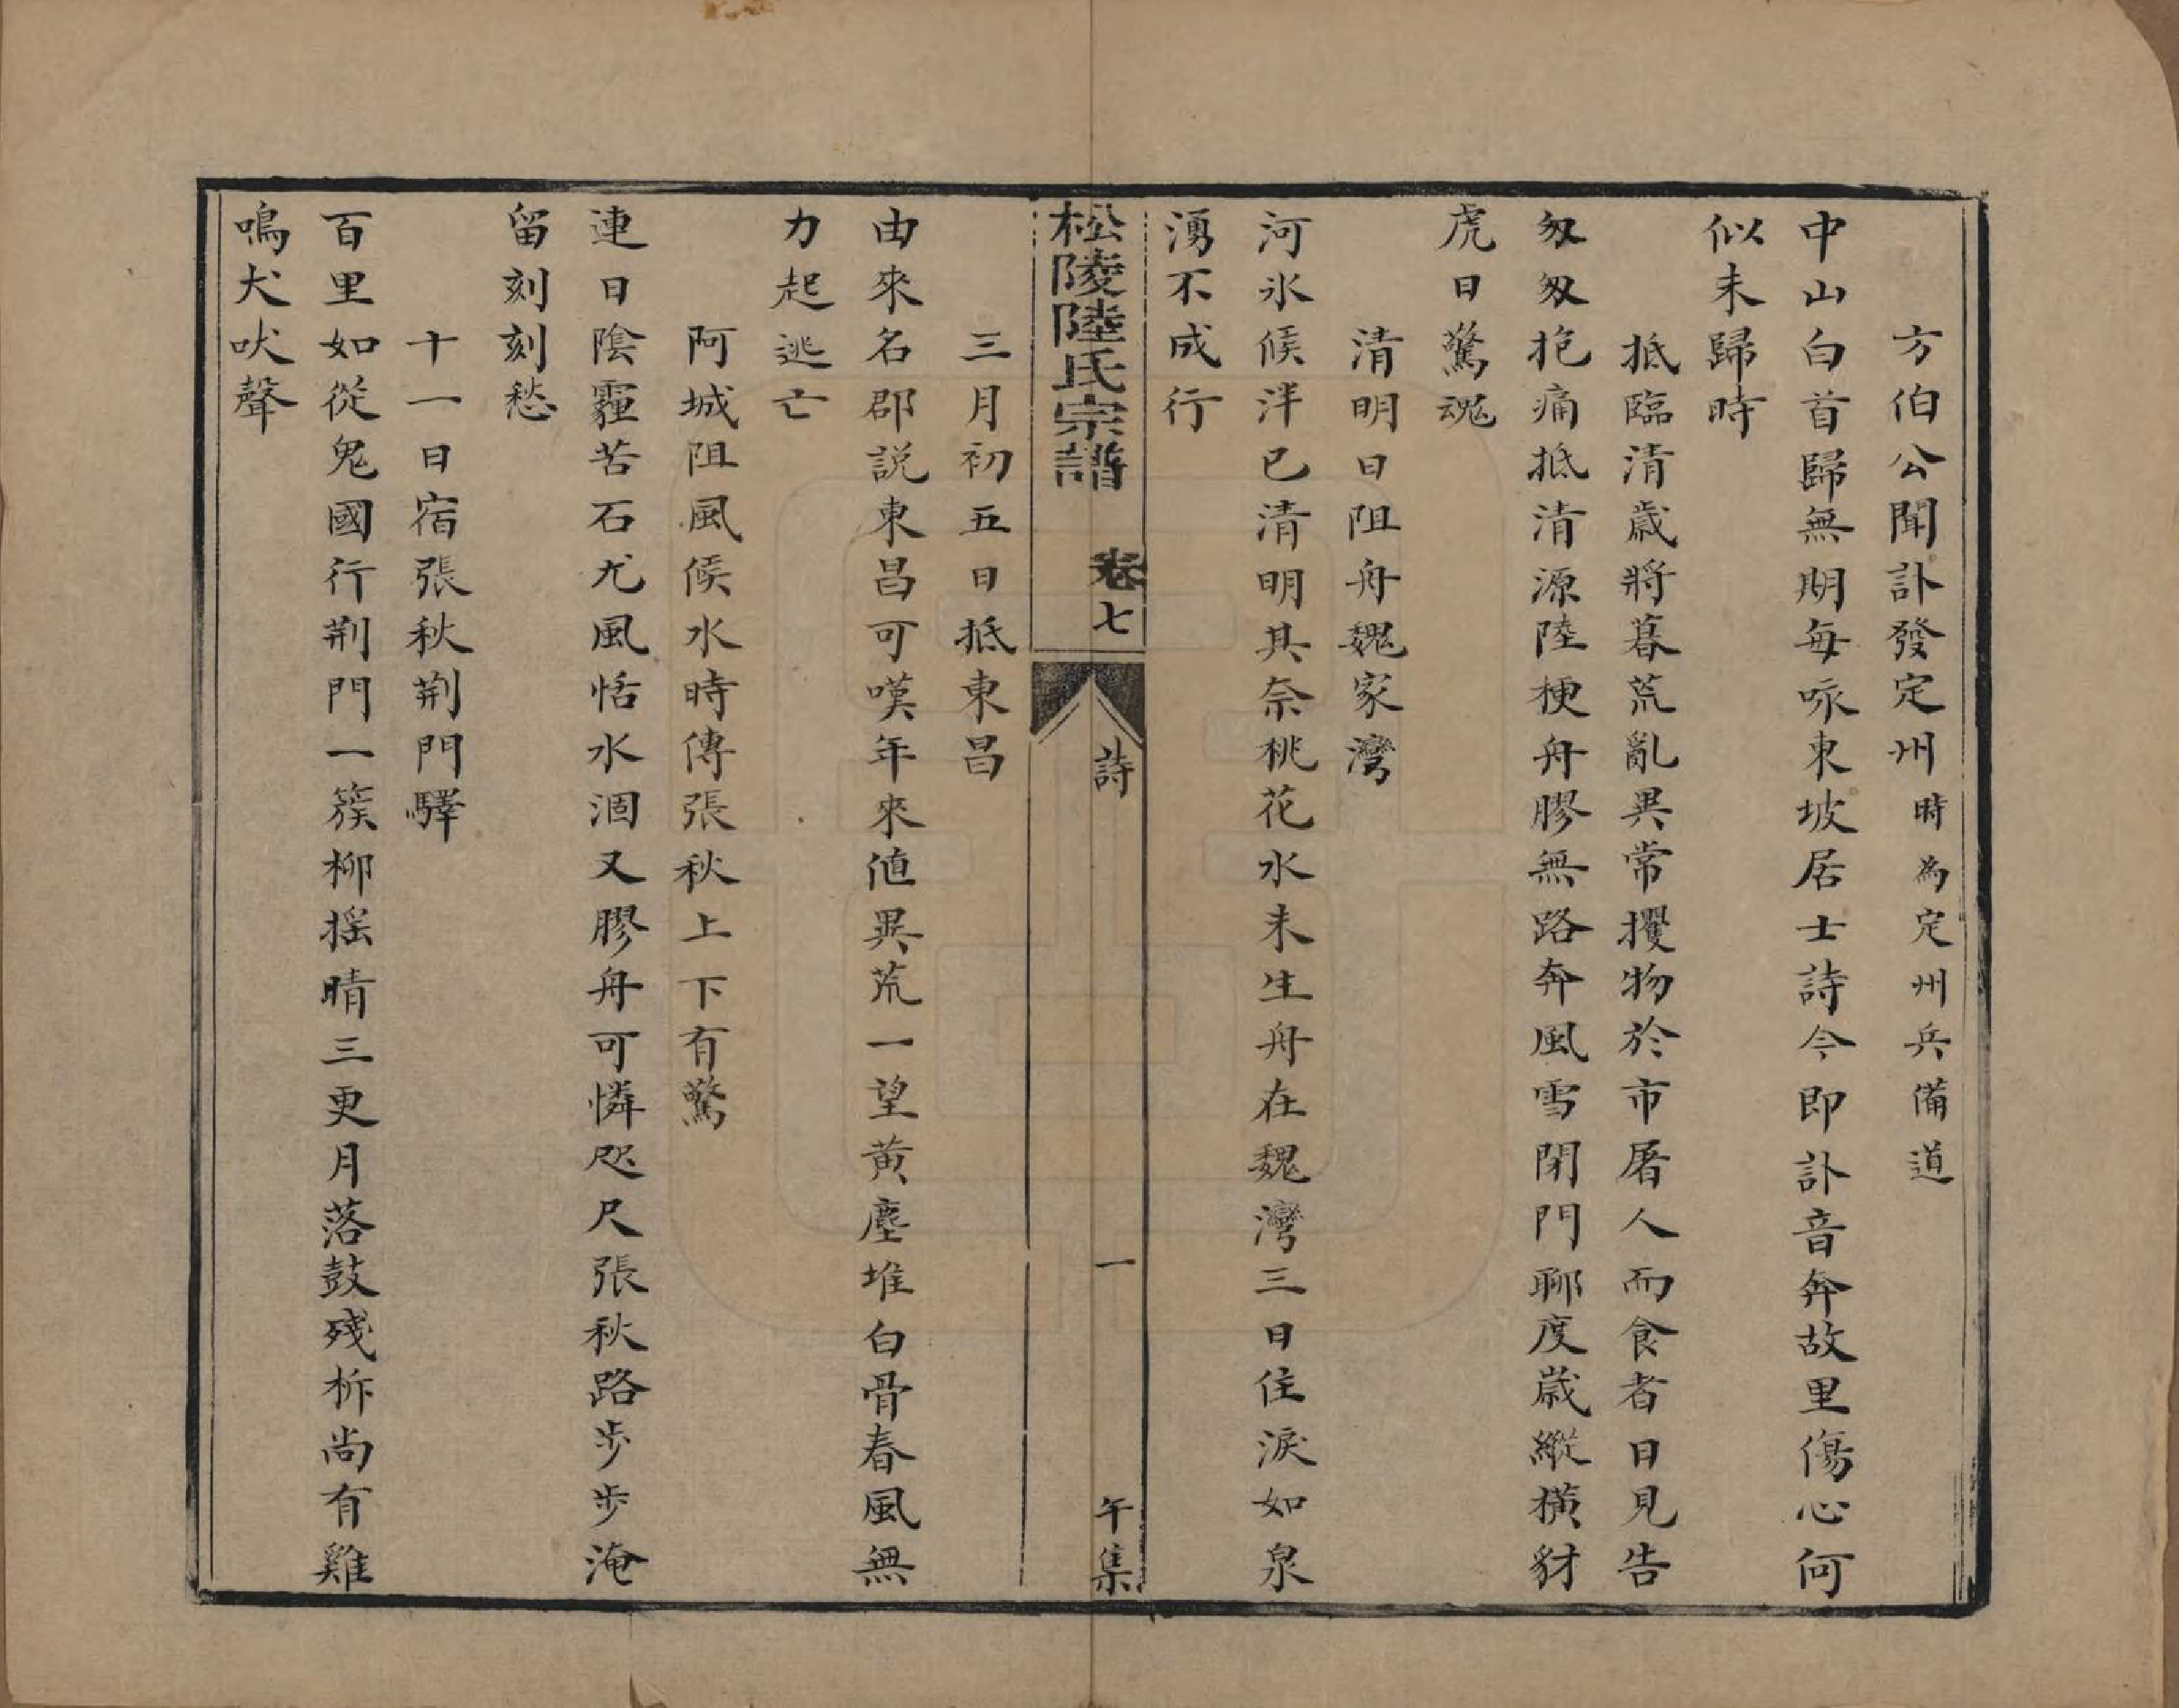 方伯公聞訃發定州時為定州兵備道
中山白首歸無期每咏東坡居士詩今即訃音奔故里傷心何
似未歸時
抵臨清歲將暮荒亂異常攫物於市屠人而食者日見告
匆匆抱痛抵清源陸梗舟膠無路奔風雪閉門聊度歲縱橫豺
虎日驚魂
清明日阻舟魏家灣
河氷候泮已清明其奈桃花水未生舟在魏灣三日住淚如泉
湧不成行
松陵陸氏宗譜 卷七 詩 一 午集
三月初五日抵東昌
由來名郡説東昌可嘆年來值異荒一望黄塵堆白骨春風無
力起逃亡
阿城阻風候水時傳張秋上下有驚
連日陰霾苦石尤風恬水涸又膠舟可憐咫尺張秋路步步淹
留刻刻愁
十一日宿張秋荆門驛
百里如從鬼國行荆門一簇柳摇晴三更月落鼓殘柝尚有雞
鳴犬吠聲